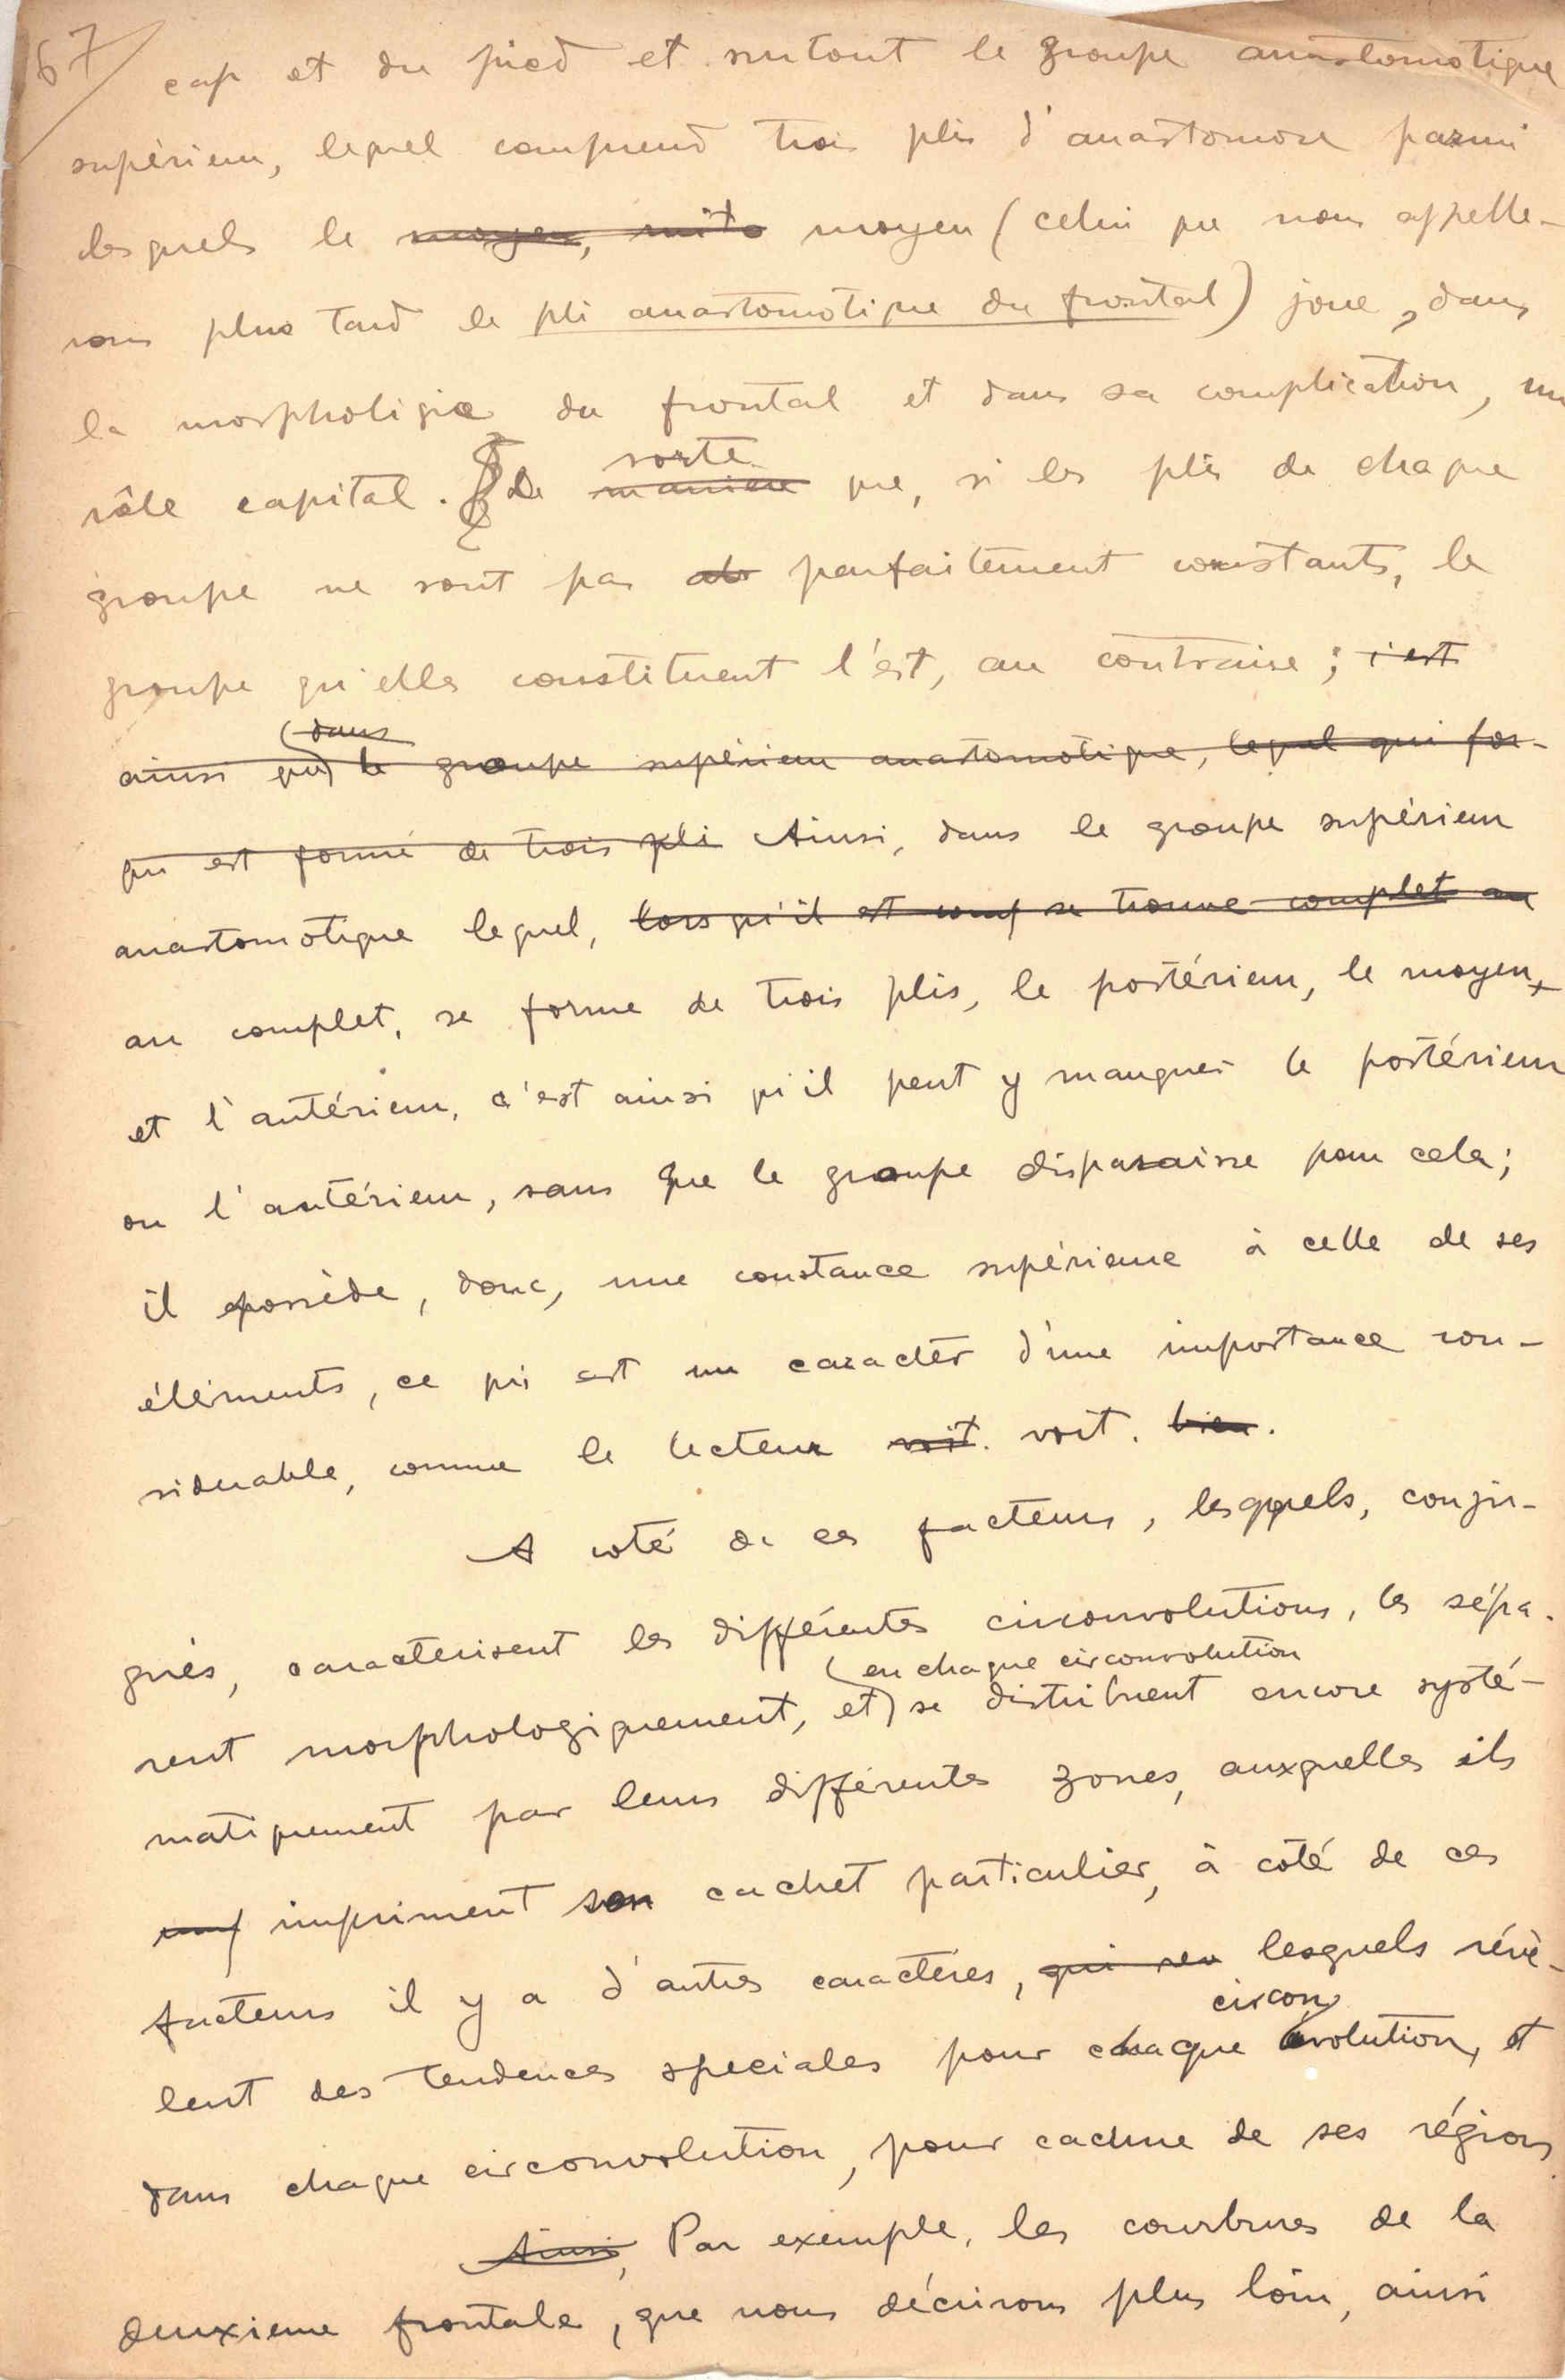 67
cap et du pied et surtout le groupe anastomotique
supérieur, lequel comprend trois plis d'anastomose parmi
lesquels le moyen, mito moyen (celui que nous appelle-
rons plus tard le pli anastomotique du frontal) joue, dans
la morphologie du frontal et dans sa complication, un
sorte
rôle capital. De maniere que, si les plis de chaque
groupe ne sont pas abs parfaitement constants, le
groupe qu'elles constituent l'est, au contraire; c'est
dans
ainsi que le groupe supérieur anastomotique, lequel qui for-
qui est formé de trois pli Ainsi, dans le groupe supérieur
anastomotique lequel, lorsqu'il est comp se trouve complet au
au complet, se forme de trois plis, le postérieur, le moyen
et l'antérieur, c'est ainsi qu'il peut y manquer le postérieur
ou l'antérieur, sans que le groupe disparaisse pour cela;
il possède, donc, une constance supérieure à celle de ses
éléments, ce qui est un caractèr d'une importance con-
siderable, comme le lecteur voit. voit. bien.
A coté de ces facteurs, lesquels, conju-
gués, caracterisent les différentes circonvolutions, les sépa-
en chaque circonvolution
rent morphologiquement, et se distribuent encore systé-
matiquement par leurs différentes zones, auxquelles ils
imp impriment son cachet particulier, à coté de ces
facteurs il y a d'autres caractères, qui rev lesquels révè-
circon
lent des tendences speciales pour chaque volution, et
dans chaque circonvolution, pour cachune de ses régions.
Ainsi, Par exemple, les courbures de la
deuxieme frontale, que nous décrirons plus loin, ainsi